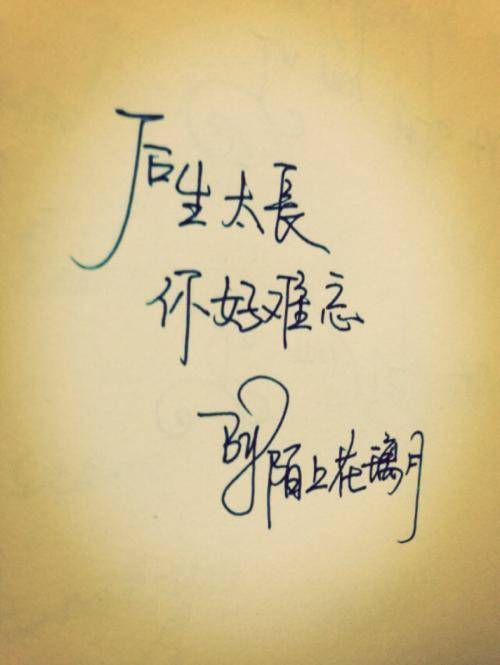 后生太長
你好难忘
By 陌上花璃月